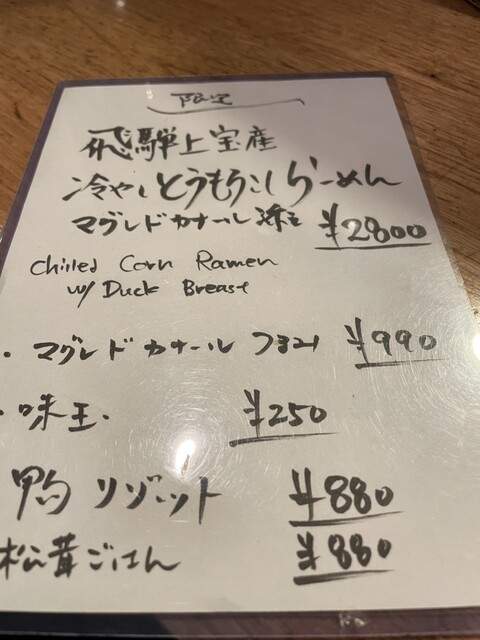 限定
飛騨上宝産
冷やしとうもろこしらーめん
マグレドカナール添え ¥2800
Chilled Corn Ramen
w/ Duck Breast
・マグレドカナール つまみ ¥990
・味玉・ ¥250
鴨リゾット ¥880
松茸ごはん ¥880